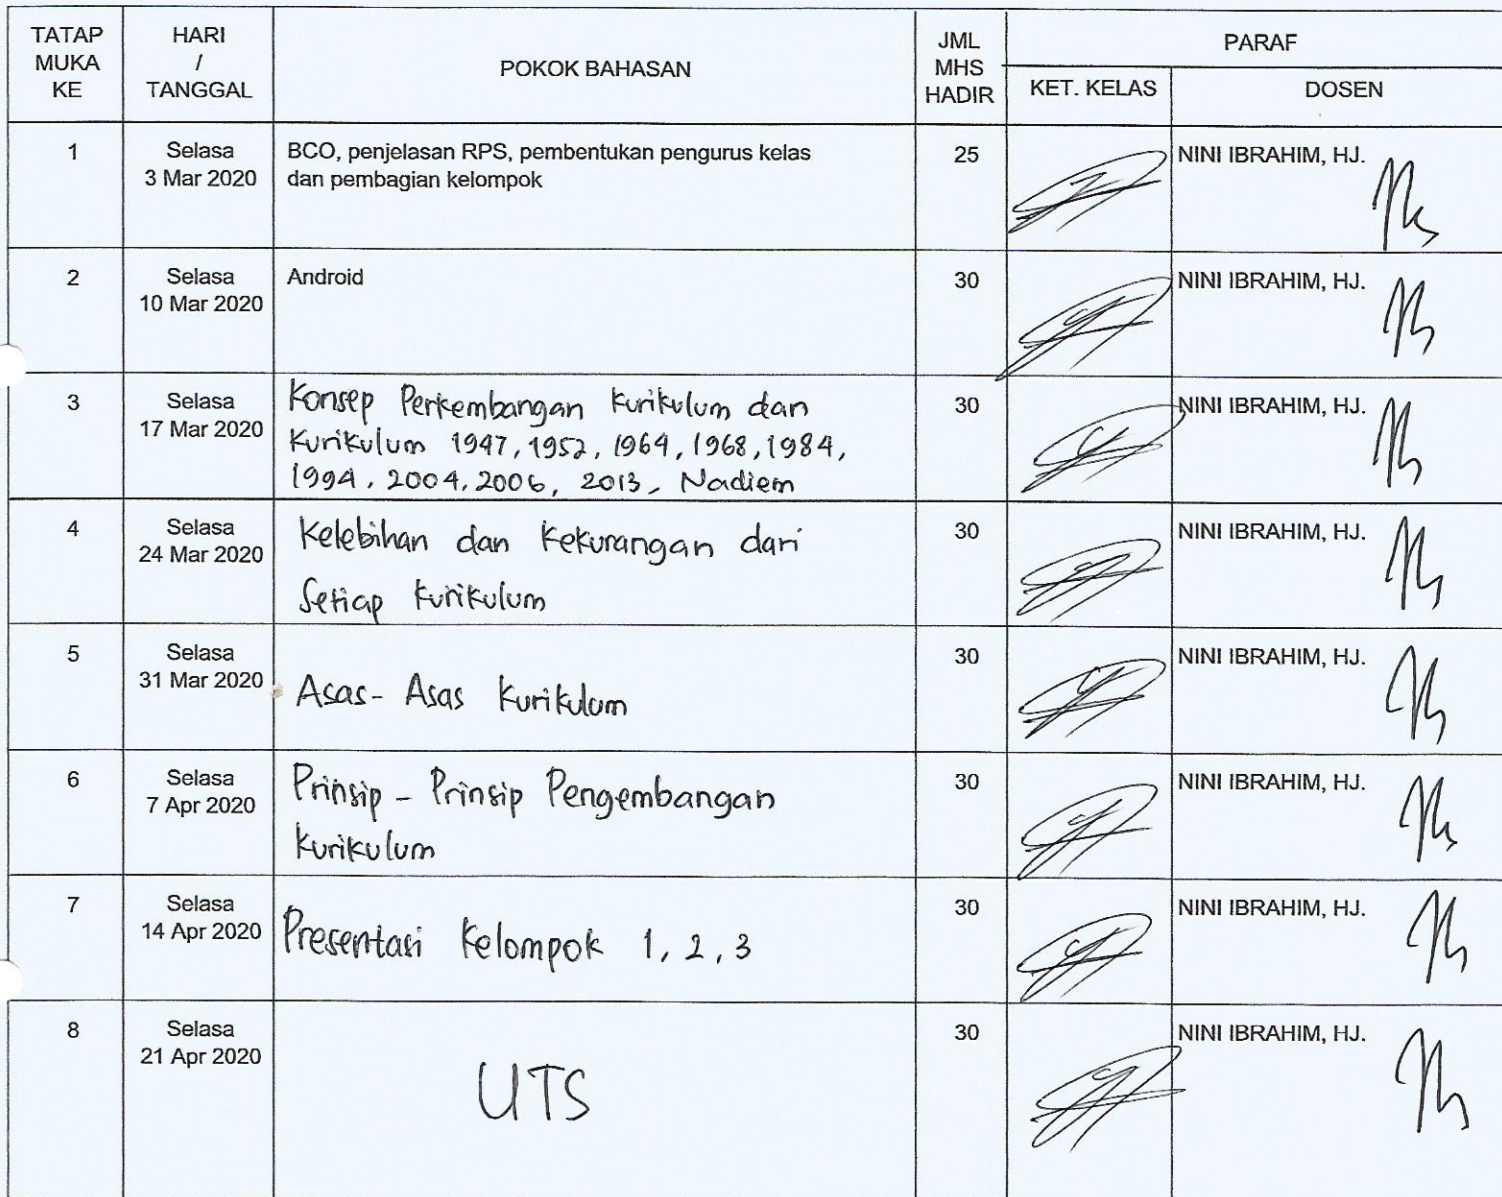 TATAP
MUKA
KE
HARI
/
TANGGAL
POKOK BAHASAN
JML
MHS
HADIR
PARAF
KET. KELAS
DOSEN
1
Selasa
3 Mar 2020
BCO, penjelasan RPS, pembentukan pengurus kelas
dan pembagian kelompok
25
NINI IBRAHIM, HJ.
2
Selasa
10 Mar 2020
Android
30
NINI IBRAHIM, HJ.
3
Selasa
17 Mar 2020
Konsep Perkembangan Kurikulum dan
Kurikulum 1947, 1952, 1964, 1968, 1984,
1994, 2004, 2006, 2013, Nadiem
30
NINI IBRAHIM, HJ.
4
Selasa
24 Mar 2020
Kelebihan dan Kekurangan dari
Setiap Kurikulum
30
NINI IBRAHIM, HJ.
5
Selasa
31 Mar 2020
Asas - Asas Kurikulum
30
NINI IBRAHIM, HJ.
6
Selasa
7 Apr 2020
Prinsip - Prinsip Pengembangan
Kurikulum
30
NINI IBRAHIM, HJ.
7
Selasa
14 Apr 2020
Presentasi Kelompok 1, 2, 3
30
NINI IBRAHIM, HJ.
8
Selasa
21 Apr 2020
UTS
30
NINI IBRAHIM, HJ.